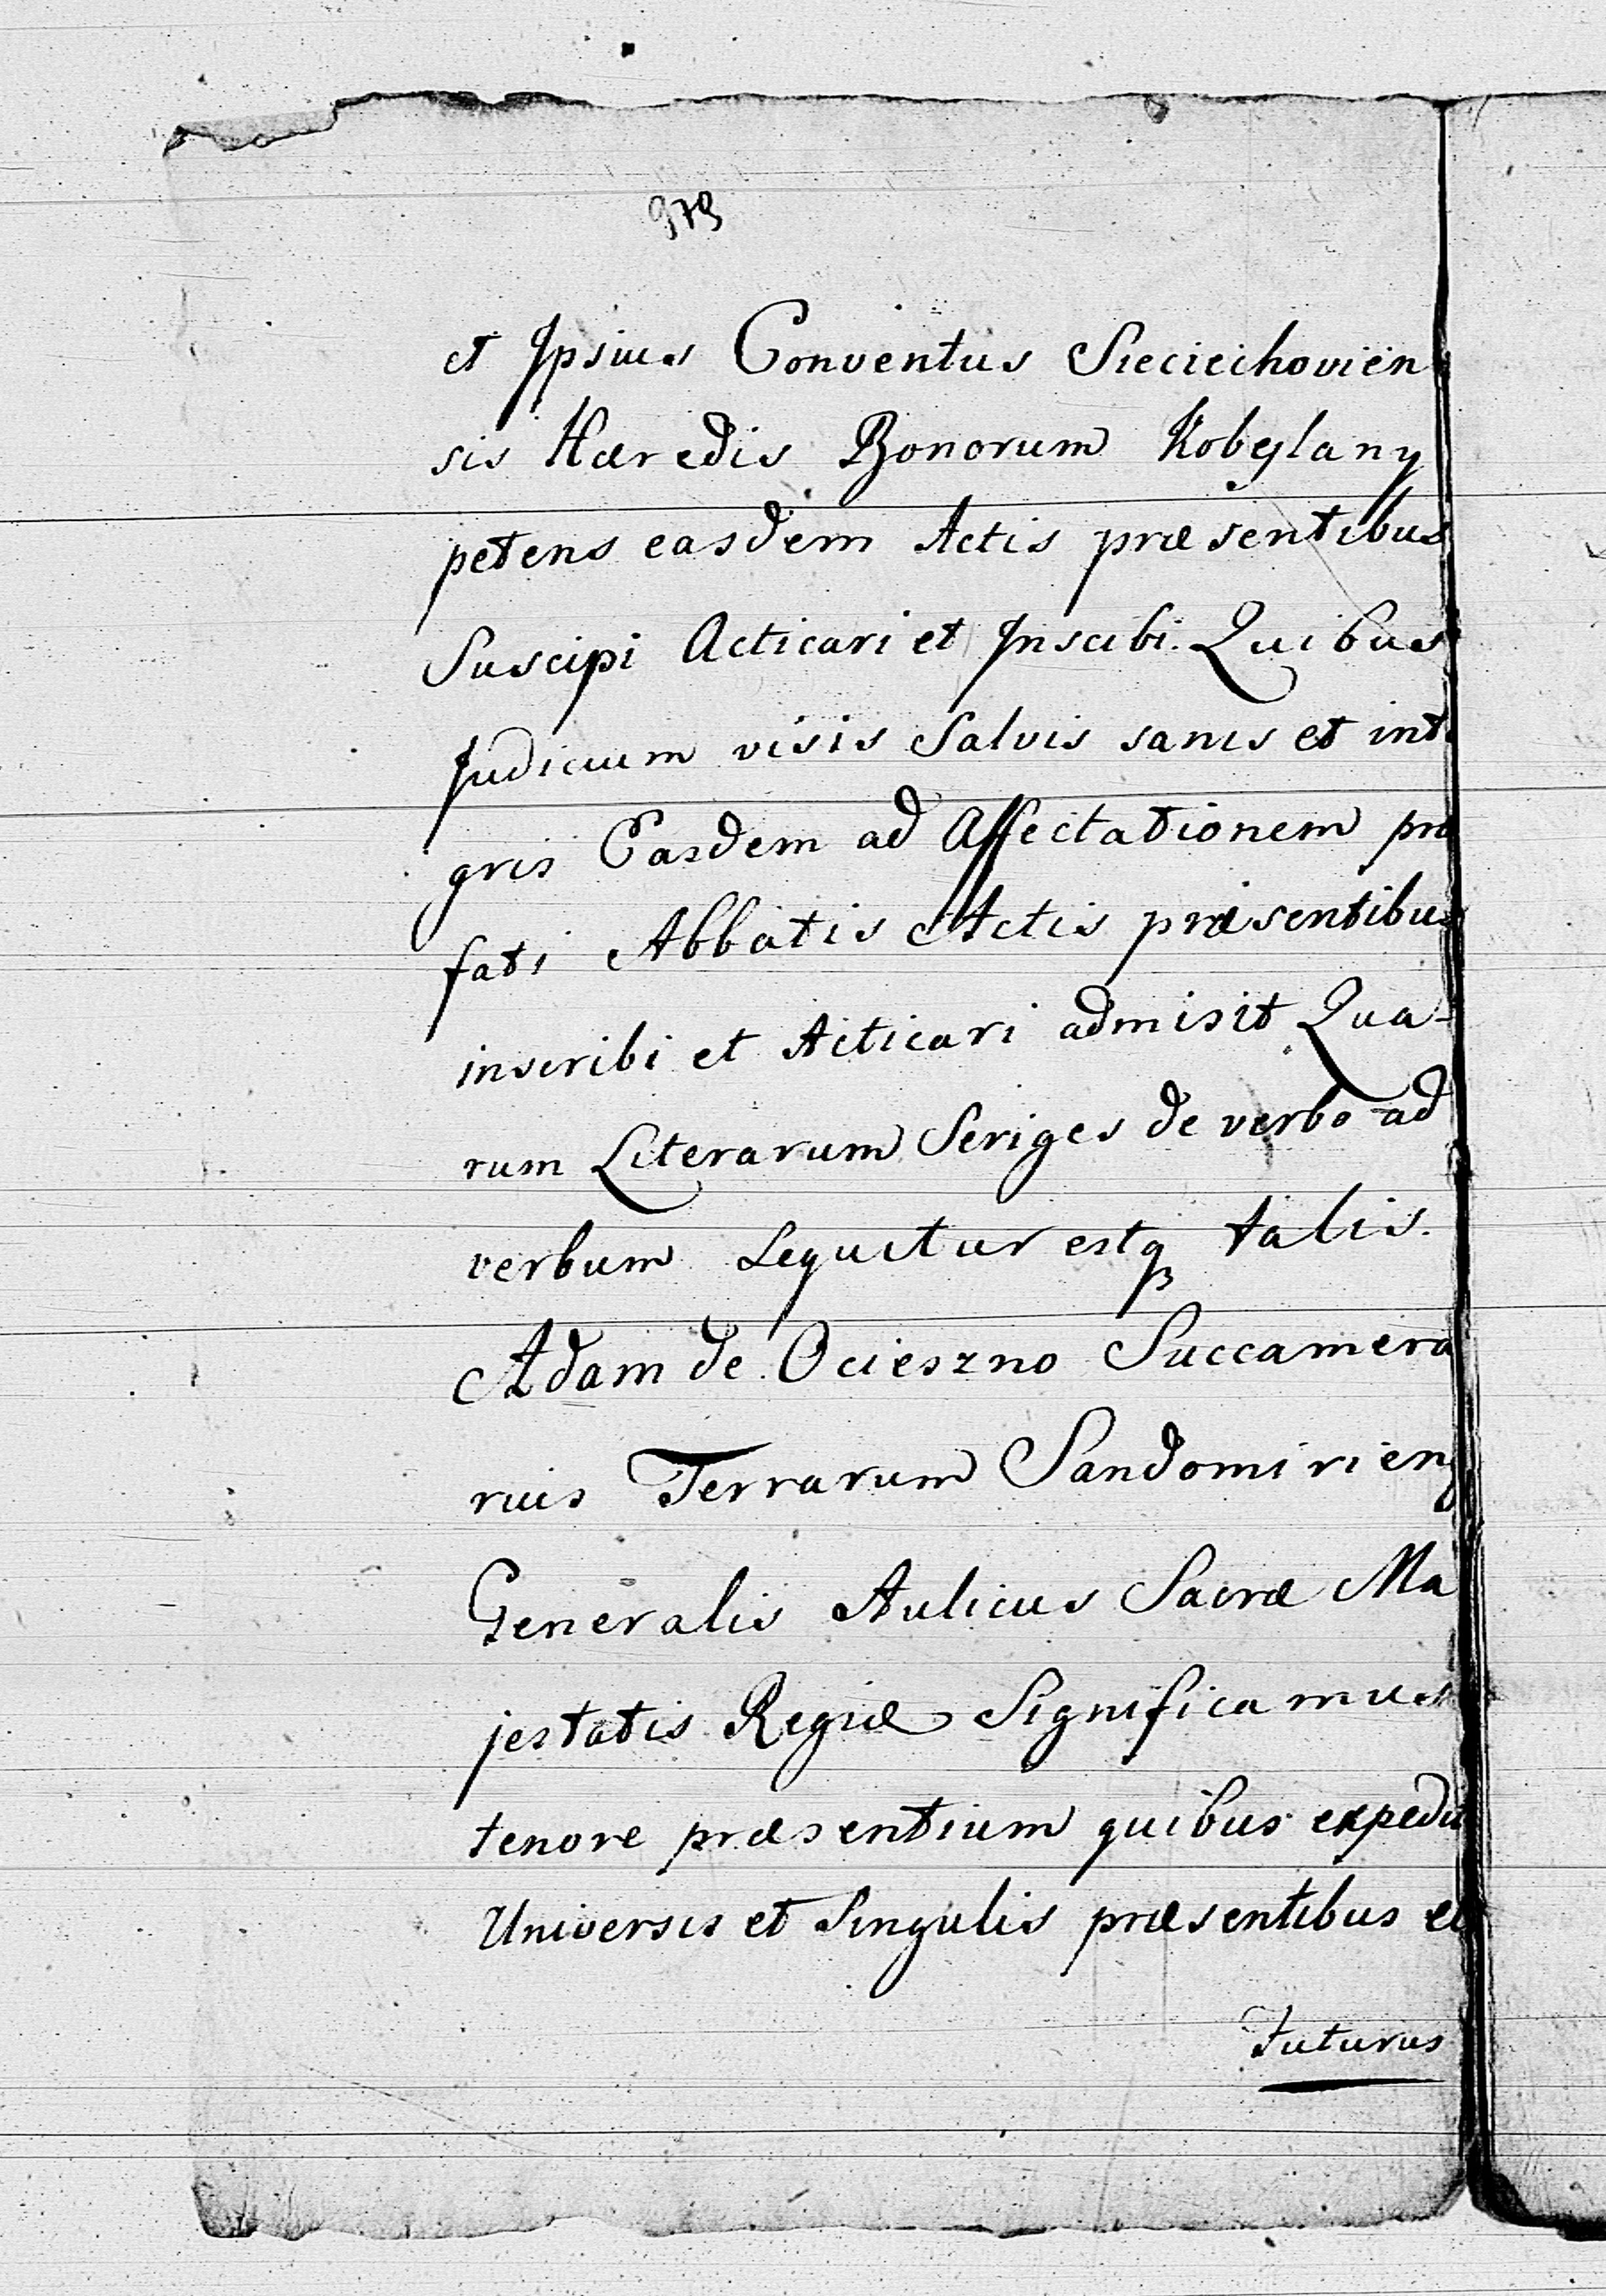 979
et Ipsius Conventus Sieciechovien
sis Hæredis Bonorum Kobylany
petens easdem Actis præsentibus
Suscipi Acticari et Inscibi. Quibus
Judicium visis Salvis sanis et inte
gris Easdem ad Affectationem præ
fati Abbatis Actis præsentibus
inscribi et Acticari admisit Qua-
rum Literarum Seriges de verbo ad
verbum Sequitur estq talis.
Adam de Ocieszno Succamera
rius Terrarum Sandomirien
Generalis Aulicus Sacræ Ma
jestatis Regiæ Significamus
tenore præsentium quibus expedit
Universis et Singulis præsentibus et
Futurus